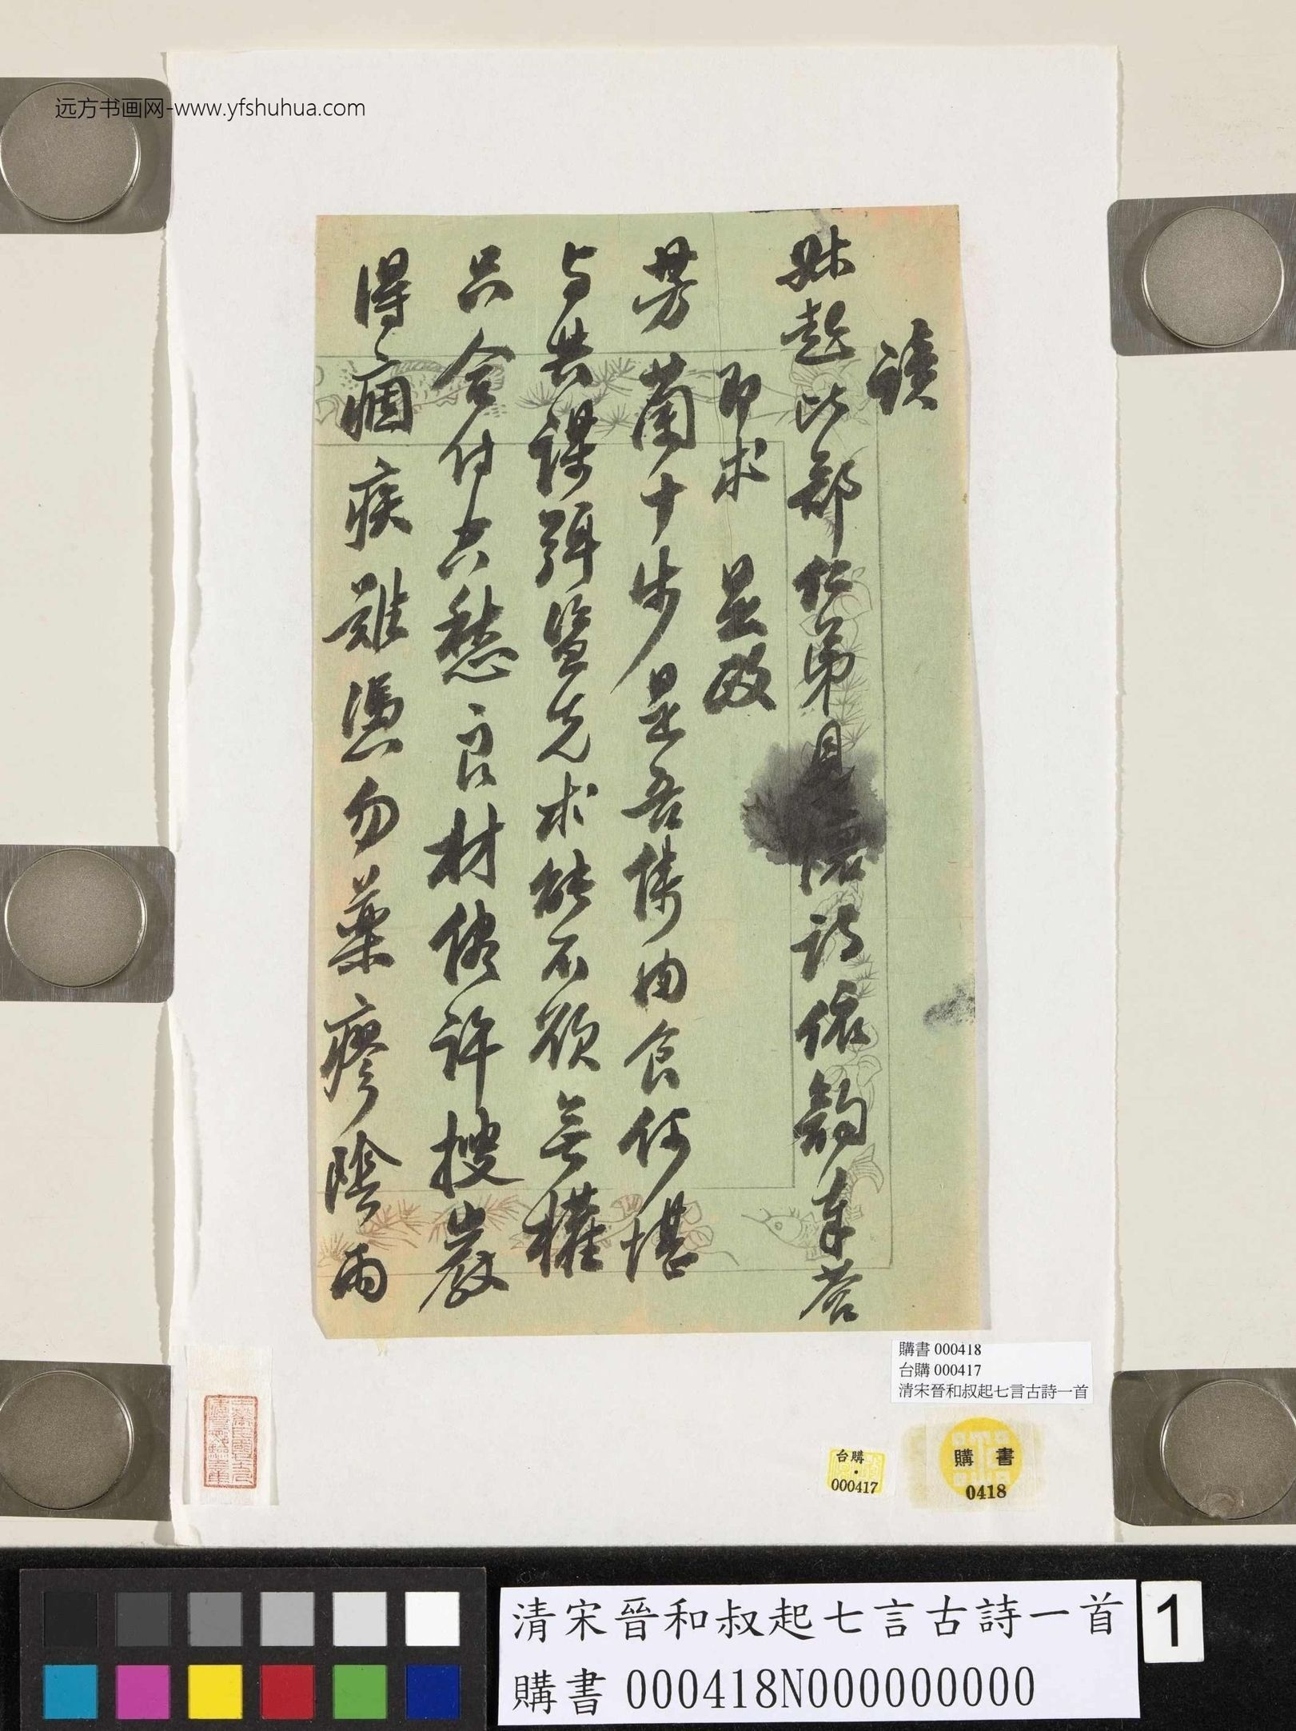 远方书画网-www.yfshuhua.com
读
叔起比部仁弟見懷诗依韵奉答
即求 是政
芳蘭十步是吾儔肉食何堪
与共謀強鋻先求能不欲無權
只合付六愁良材倘许搜巖
得痼疾難憑勿藥瘳陰雨
購書 000418
台購 000417
清宋晉和叔起七言古詩一首
台購
000417
購書
0418
清宋晉和叔起七言古詩一首
購書 000418N000000000
1